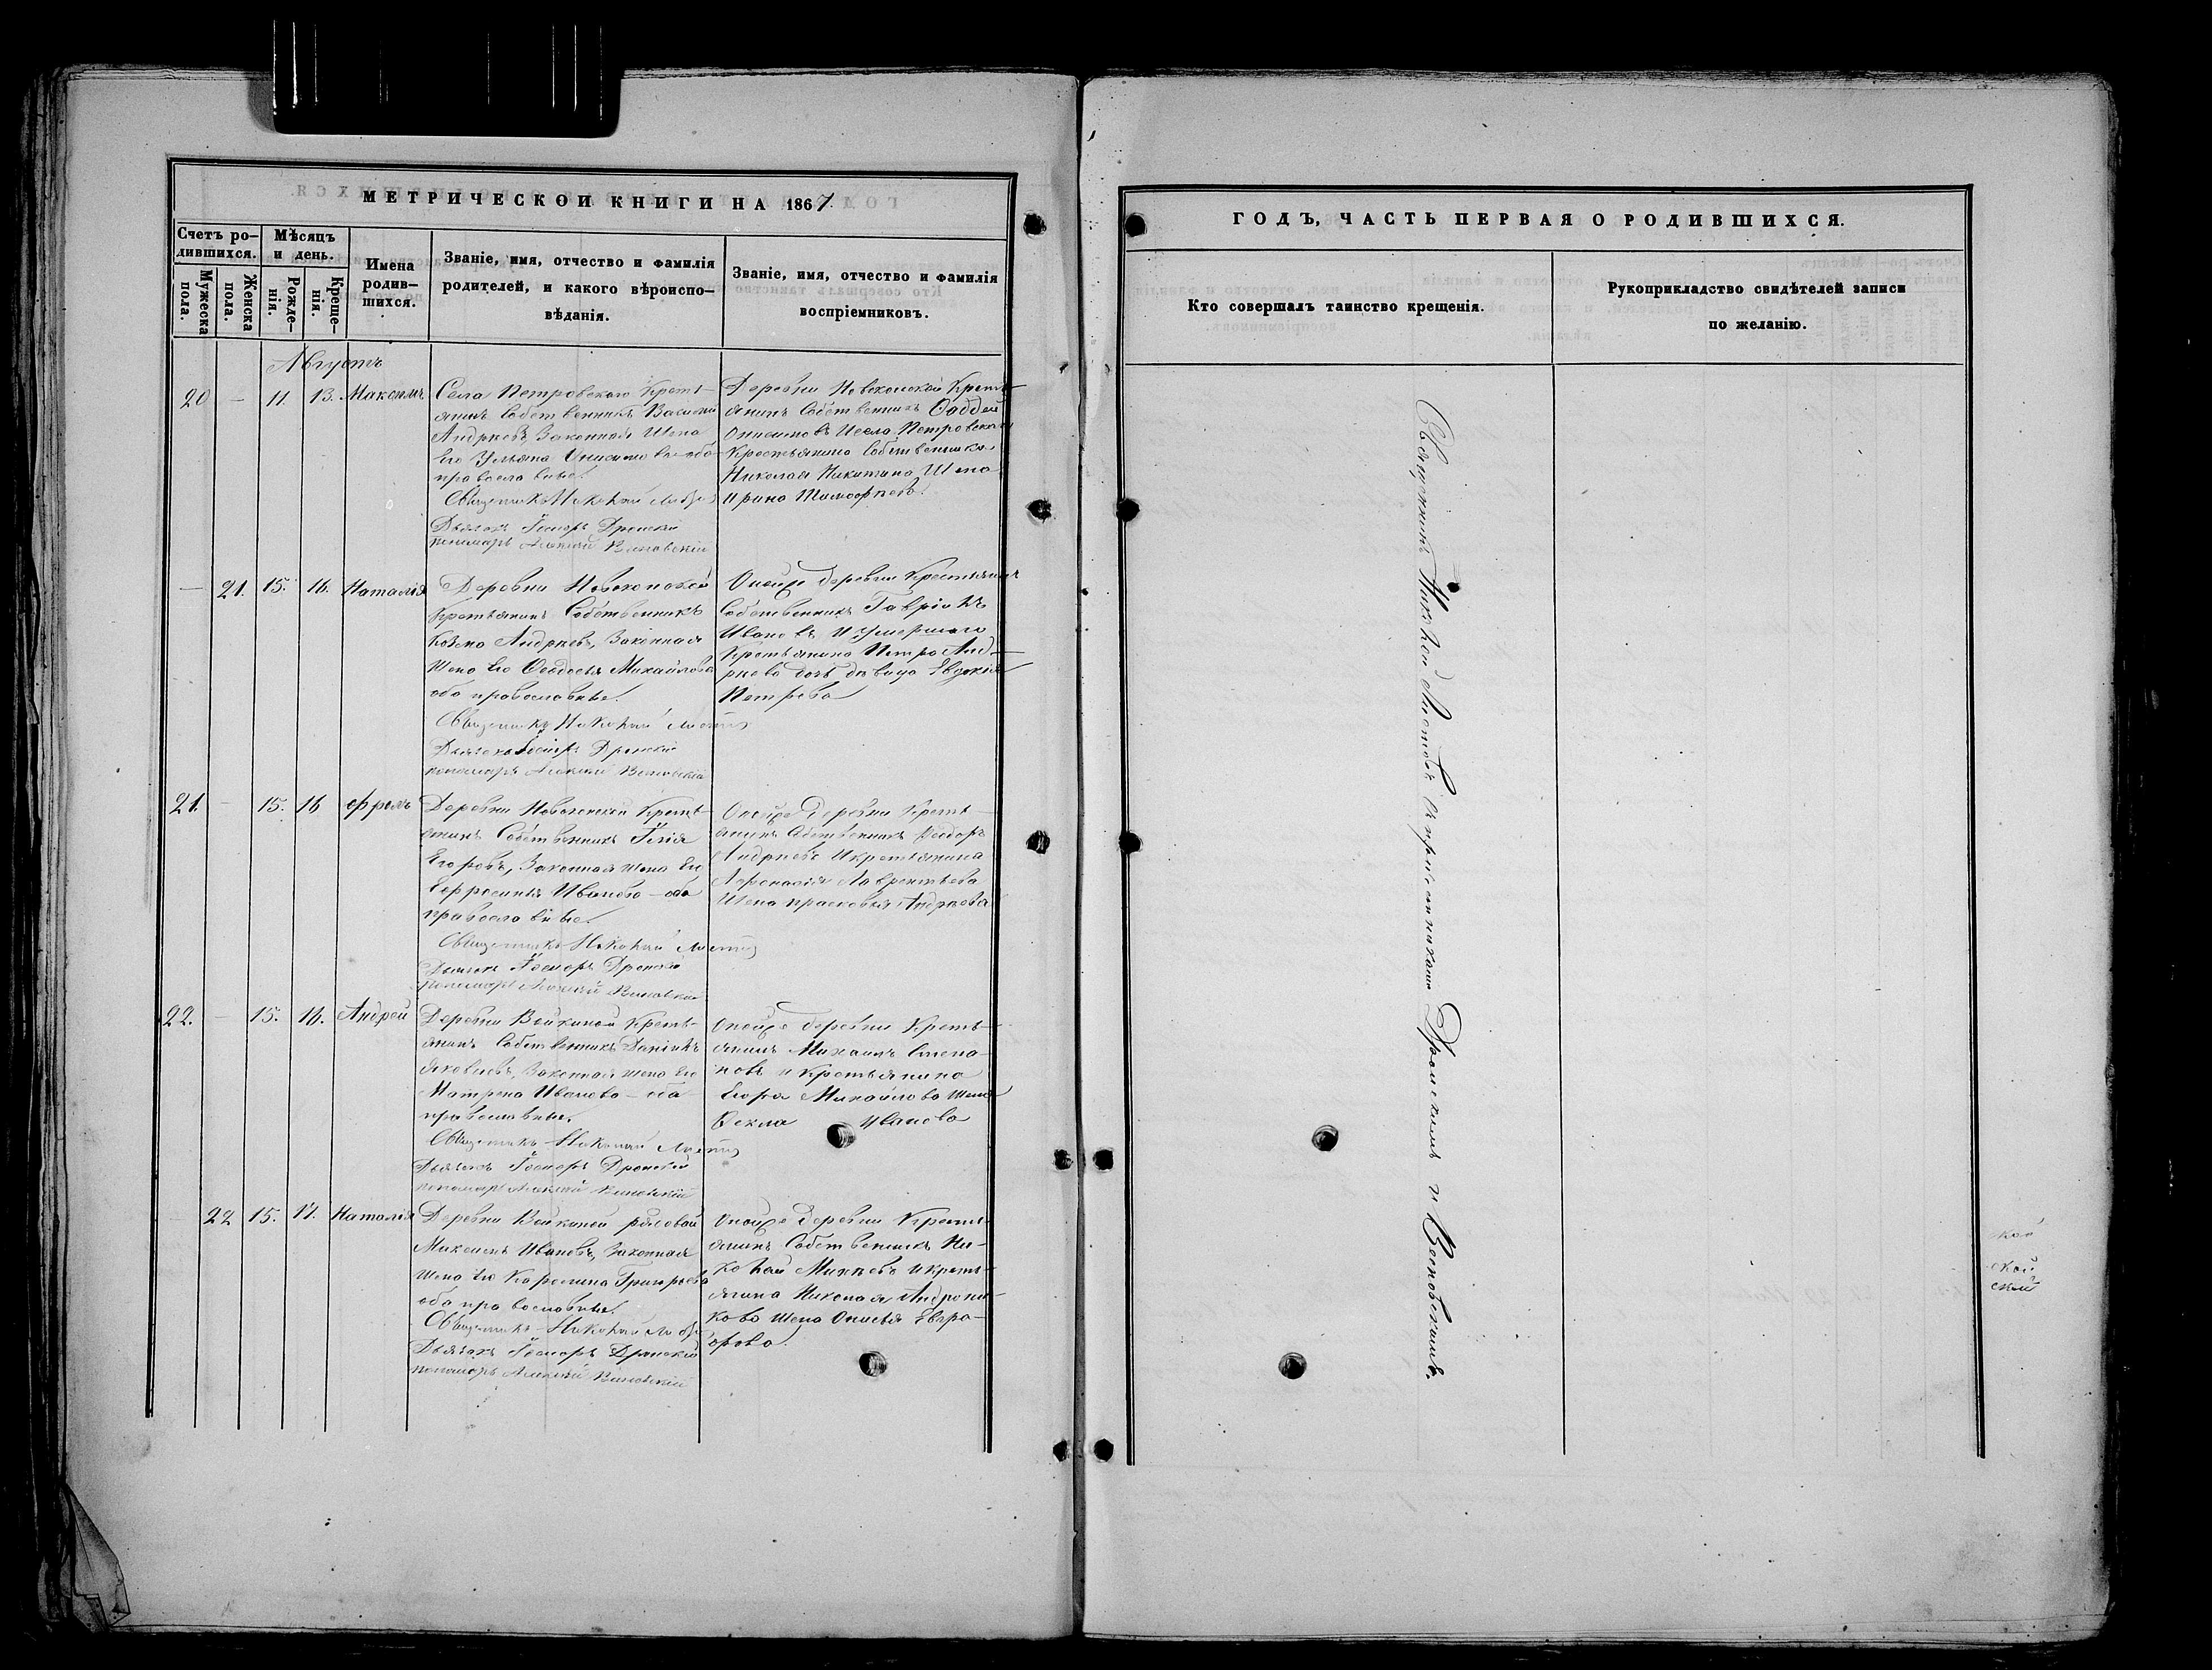 МЕТРИЧЕСКОЙ КНИГИ НА 1867.
Счетъ ро-
дившихся.
Мужеска
пола.
Женска
пола.
Мѣсяцъ
и день.
Рожде-
нія.
Креще-
нія.
Имена
родив-
шихся.
Званіе, имя, отчество и фамилія
родителей, и какого вѣроиспо-
вѣданія.
Званіе, имя, отчество и фамилія
воспріемниковъ.
Августъ
20 — 11. 13. Максимъ
Села Петровскаго Кресть-
янинъ Собственникъ Василій
Андреевъ, Законная Жена
Его Ульяна Онисимова оба
православные.
Священникъ Николай
Дьячекъ Ѳедоръ Дронскій
пономарь Алексѣй
Деревни Кресть-
янинъ Собственникъ Ѳаддей
Онисимовъ И села Петровскаго
Крестьянина Собственника
Николая Никитина Жена
Ирина Тимофеева.
— 21. 15. 16. Наталія
Деревни
Крестьянинъ Собственникъ
Козма Андреевъ, Законная
Жена Его Ѳеодосья Михайлова
оба православные.
Священникъ Николай
Дьячекъ Дронскій
пономарь Алексѣй
Онойже деревни Крестьянинъ
Собственникъ Гавріилъ
Ивановъ И умершаго
Крестьянина Петра Анд-
реева дочь девица Евдокія
Петрова
21. — 15. 16
Деревни Кресть-
янинъ Собственникъ Илія
Егоровъ, Законная жена Его
Евфросинья Иванова — оба
православные.
Священникъ Николай
Дьячекъ Дронскій
пономарь Алексѣй
Онойже Деревни Кресть-
янинъ Собственникъ Ѳеодоръ
Андреевъ И крестьянина
Афанасія Лаврентьева
Жена прасковья Андреева
22. — 15. 16. Андрей
Деревни Войкиной Кресть-
янинъ Собственникъ Даніилъ
Яковлевъ, Законная жена Его
Матрена Иванова — оба
православные.
Священникъ Николай
Дьячекъ Дронскій
пономарь Алексѣй
Онойже деревни Кресть-
янинъ Михаилъ Степа-
новъ и Крестьянина
Егора Михайлова жена
Ѳекла Иванова
22 15. 17. Наталія
Деревни Войкиной рядовой
Максимъ Ивановъ, Законная
жена Его Каролина Григорьева
оба православные.
Священникъ Николай
Дьячекъ Дронскій
пономарь Алексѣй
Онойже деревни Кресть-
янинъ Собственникъ Ни-
колай Михеевъ И кресть-
янина Николая Андрони-
кова жена Онисья Евгра-
фова.
ГОДЪ, ЧАСТЬ ПЕРВАЯ О РОДИВШИХСЯ.
Кто совершалъ таинство крещенія.
Рукоприкладство свидѣтелей записи
по желанію.
Священникъ Николай Съ причетниками Дронскимъ и
ской
ской